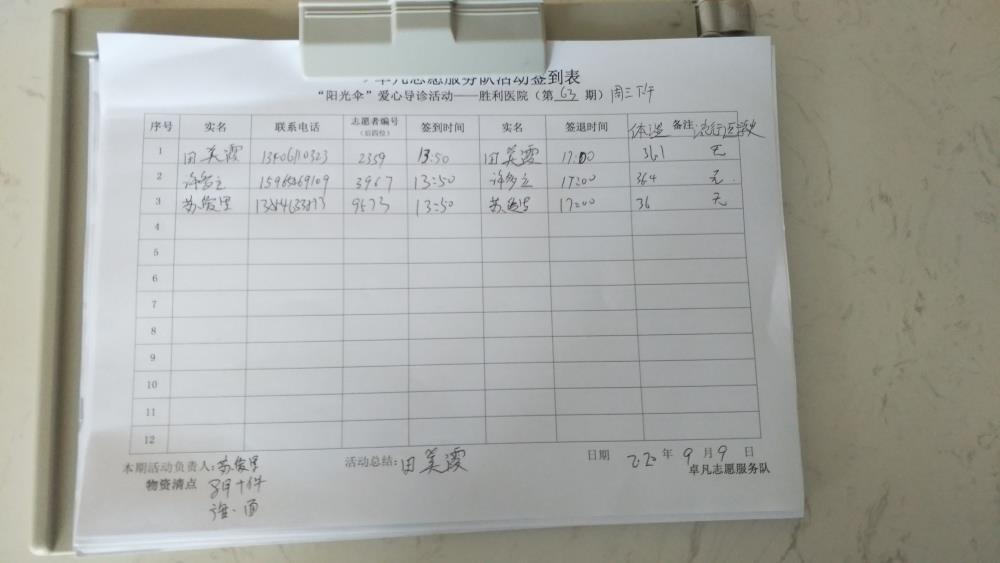 卓凡志愿服务队活动签到表
“阳光伞”爱心导诊活动——胜利医院（第63期）周三下午
序号 实名 联系电话 志愿者编号（后四位） 签到时间 实名 签退时间 体温 备注 流行医学史
1 田美霞 13406110323 2359 13:50 田美霞 17:00 361 无
2 许多立 3967 13:50 许多立 17:00 364 无
3 苏俊里 9573 13:50 17:00 36 无
4
5
6
7
8
9
10
11
12
本期活动负责人: 苏俊里 活动总结: 田美霞 日期 2020年9月9日
物资清点 卓凡志愿服务队